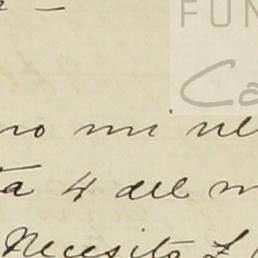 FUN
Ca
no mi
ta 4 del m
Necesito